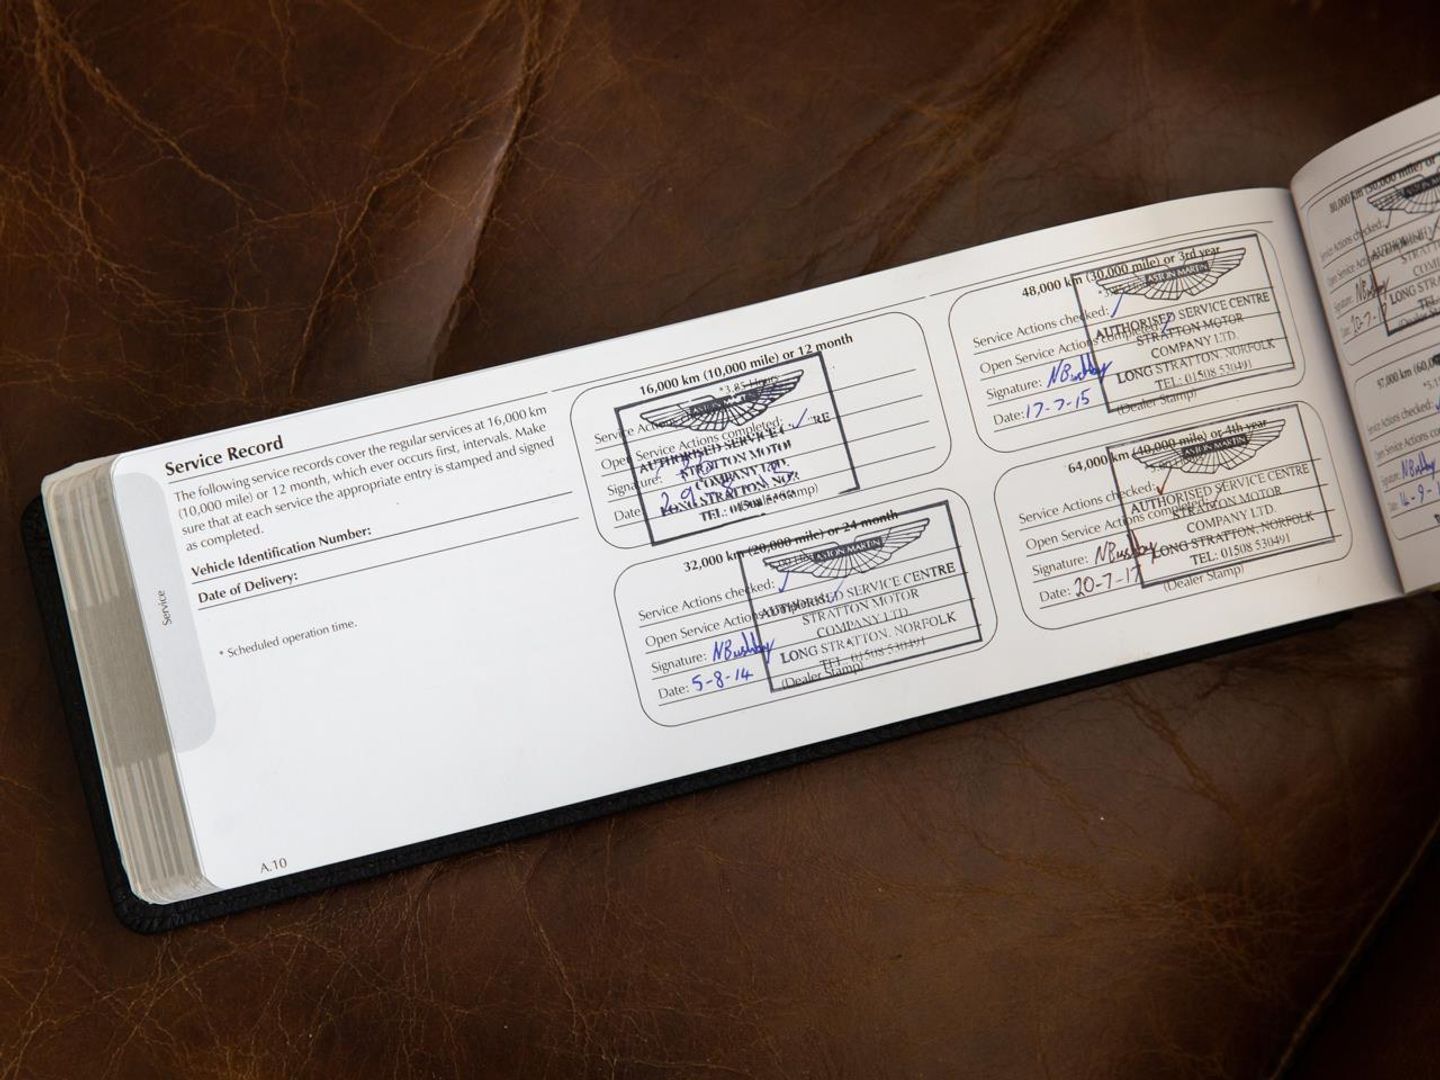 Service Record
The following service records cover the regular services at 16,000 km
(10,000 mile) or 12 month, which ever occurs first, intervals. Make
sure that at each service the appropriate entry is stamped and signed
as completed.
Vehicle Identification Number:
Date of Delivery:
* Scheduled operation time.
Service
A.10
16,000 km (10,000 mile) or 12 month
*3.85 Hours
ASTON MARTIN
Service
Open Service Actions completed:
AUTHORISED SERVICE
STRATTON MOTOR
COMPANY LTD.
Signature:
LONG STRATTON,
Date
TEL: 01508
32,000 km (20,000 mile) or 24 month
ASTON MARTIN
Service Actions checked:
Open Service Actions
AUTHORISED SERVICE CENTRE
STRATTON MOTOR
COMPANY LTD.
Signature: NBushby
LONG STRATTON, NORFOLK
TEL: 01508 530491
Date: 5-8-14
(Dealer Stamp)
48,000 km (30,000 mile) or 3rd year
ASTON MARTIN
Service Actions checked:
Open Service Actions completed:
AUTHORISED SERVICE CENTRE
STRATTON MOTOR
COMPANY LTD.
Signature: NBushby
LONG STRATTON, NORFOLK
TEL: 01508 530491
Date: 17-7-15
(Dealer Stamp)
64,000 km (40,000 mile) or 4th year
ASTON MARTIN
Service Actions checked:
Open Service Actions completed:
AUTHORISED SERVICE CENTRE
STRATTON MOTOR
COMPANY LTD.
Signature: NBushby
LONG STRATTON, NORFOLK
TEL: 01508 530491
Date: 20-7-17
(Dealer Stamp)
80,000 km (50,000 mile) or
ASTON
Service Actions checked:
AUTHORISED
LONG
Signature:
TEL:
Date:
(Dealer Stamp)
checked:
Signature:
Date: